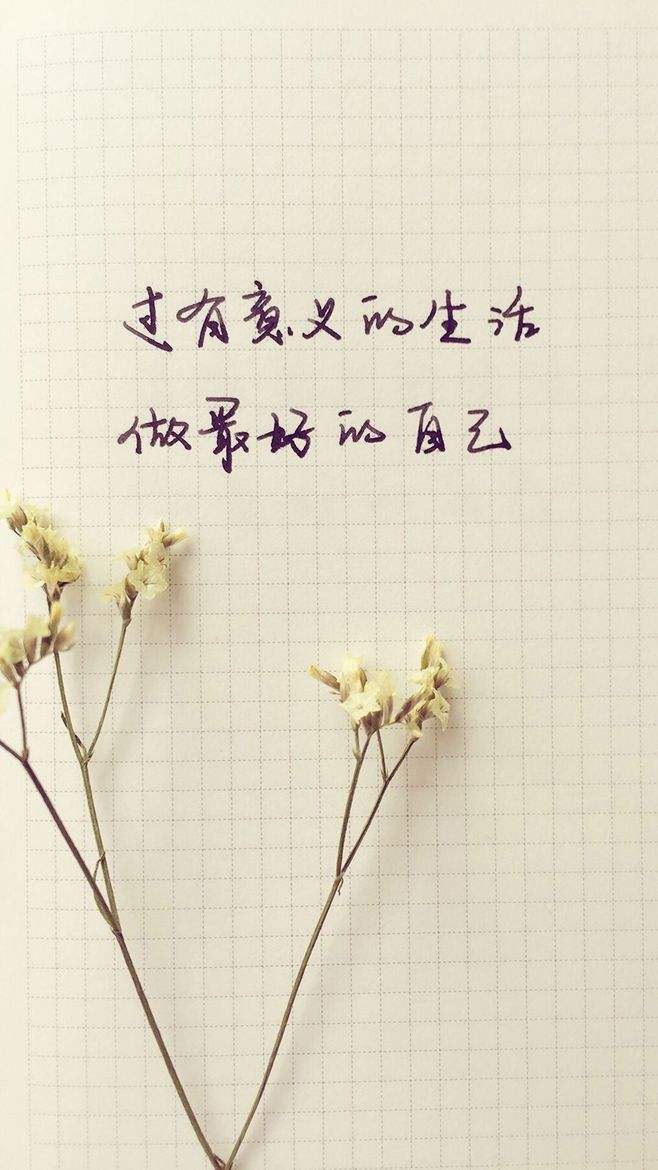 过有意义的生活
做最好的自己